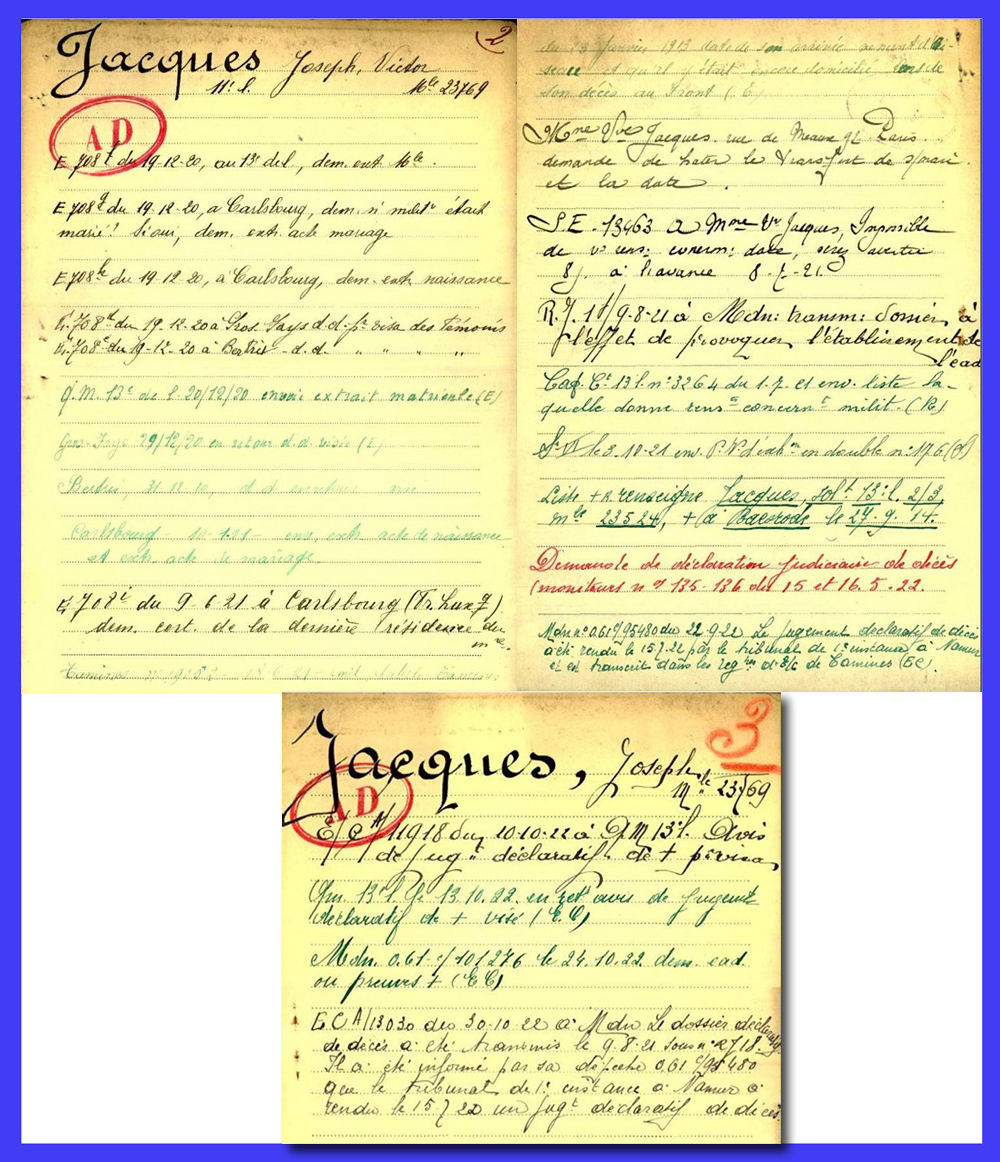 2
Jacques Joseph, Victor
11e l. Mle 23769
AD
E 708f du 19-12-20, au 13e de l, dem. ext. Mle.
E 708g du 19-12-20, à Carlsbourg, dem. si milite était
marié! Si oui, dem. ext. acte mariage
E 708h du 19-12-20, à Carlsbourg, dem. ext. naissance
708d du 19-12-20 à Gros-Fays d.d. pr visa des témoins
708e du 19-12-20 à Bertrix - d.d. " " " "
Q.M. 13e de l. 20/12/20 envoie extrait matricule (E)
Gros-Fays 29/12/20 en retour d.d. visée (E)
Bertrix, 31-12-20, d.d.
Carlsbourg - 10-1-21 - env. ext. acte de naissance
et ext. acte de mariage.
E 708i du 9-6-21 à Carlsbourg (Pr. Lux.g)
dem. cert. de la dernière résidence du
Tamines
du 29 Janvier 1913 date de son arrivée
et qu'il y était encore domicilié lors de
son décès au front (E)
Mme Vve Jacques, rue de Meaux 92 Paris
demande de hater le transfert de s/mari
et la date.
S.E. -13463 à Mme Vve Jacques, Impossible
de vs rens. concern. date, serez avertie
8j. à l'avance 8-7-21.
R.J. 18/9-8-21 à Mdn: transm: dossier à
l'effet de provoquer l'établissement de
l'ead
Caq. Ct 13 l. no 3264 du 1-7-21 env. liste la-
quelle donne rensts concernt milit. (R)
le 3-10-21 env. P.V. d'exhon en double no 176 (S)
Liste + R renseigne Jacques, solt 13e l. 2/3,
mle 23524, + à Baesrode le 27.9.14.
Demande de déclaration judiciaire de décès
(moniteurs nos 135-136 du 15 et 16.5.22.
Mdn no 0.61c/95480 du 22-9-22 Le jugement déclaratif de décès
a été rendu le 15.7.22 par le tribunal de 1e instance à Namur
et est transcrit dans les regres d'E/C de Tamines (EC).
3
Jacques, Joseph
Mle 23769
AD
E/C A/11918 du 10-10-22 à QM 13e l. Avis
de jugt déclaratif de + pr visa
Qm. 13e l. le 13.10.22 en ret. avis de jugemt
déclaratif de + visé (EC)
Mdn. 0.61 c/101276 le 24.10.22 dem. ead.
ou preuves + (EC)
E C A/13030 du 30-10-22 à Mdn Le dossier déclaratif
de décès a été transmis le 9-8-21 sous no R J 18.
Il a été informé par sa dépeche 0.61 c/95480
que le tribunal de 1e instance à Namur a
rendu le 15.7.22 un jugt déclaratif de décès.